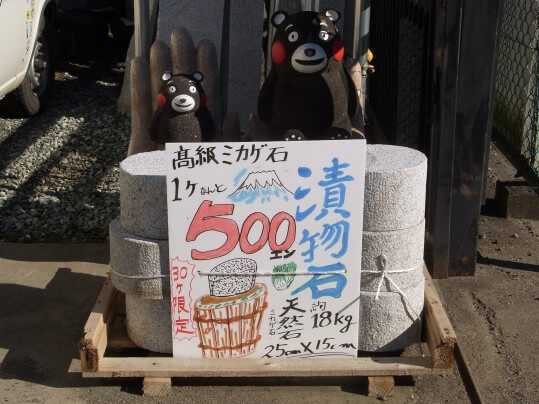 高級ミカゲ石
1ケなんと
500エン
漬物石
30ケ限定
ミカゲ石
天然石
約18kg
25cm×15cm